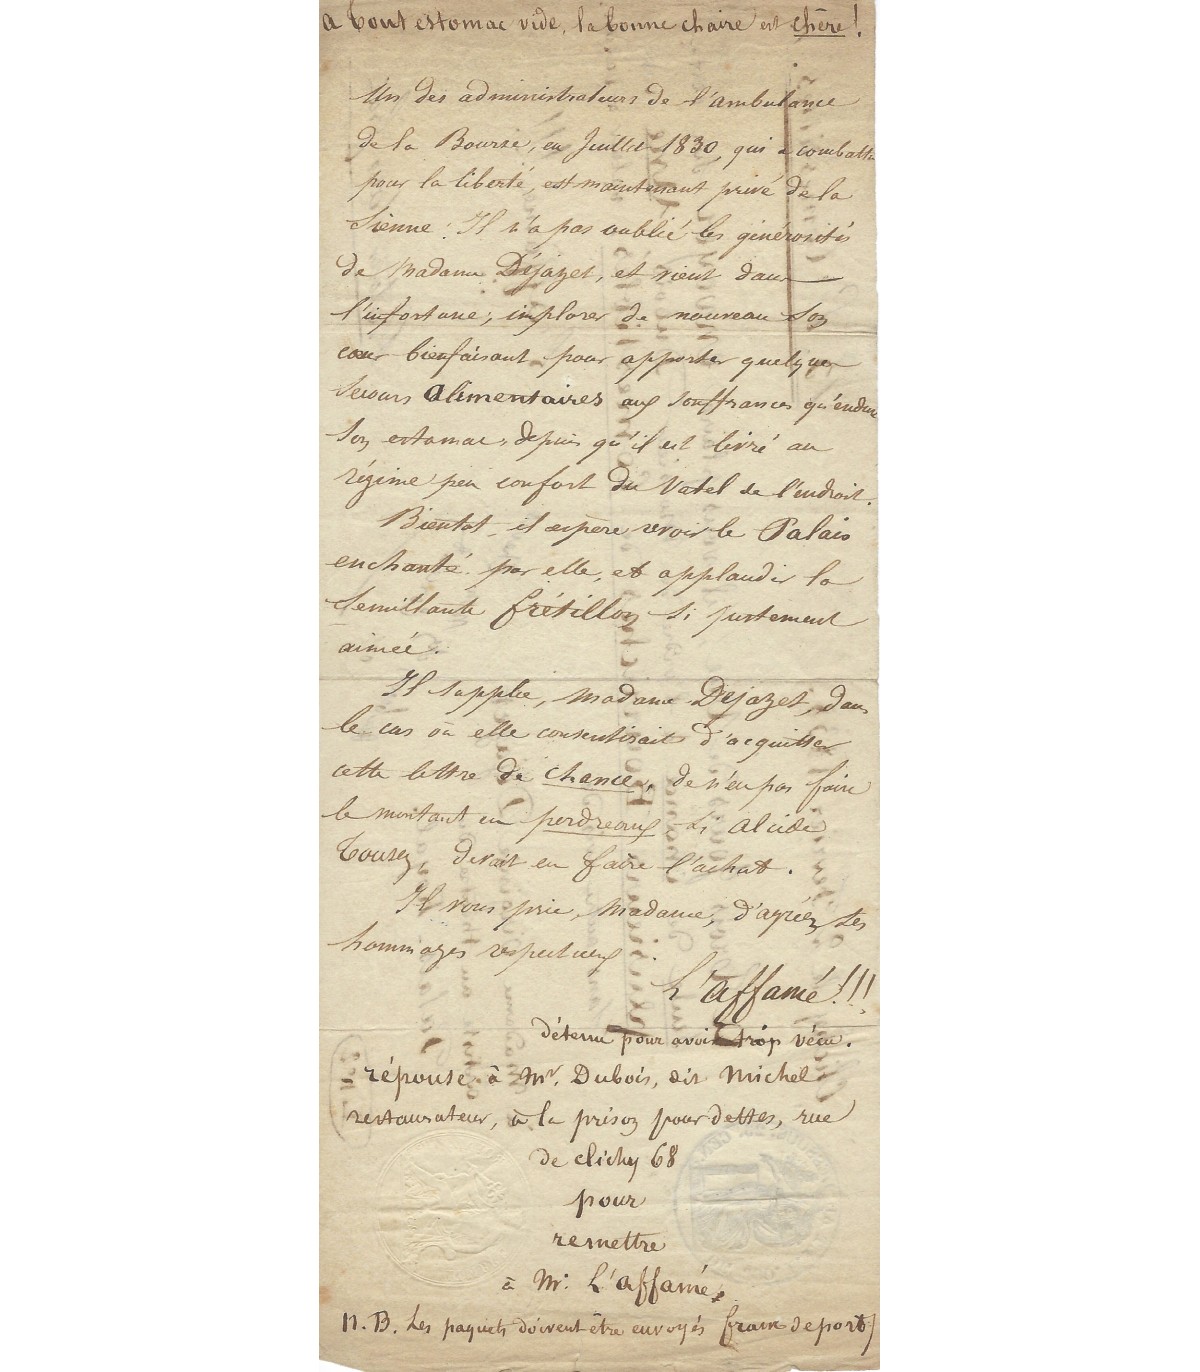 a tout estomac vide, la bonne chaire est chère!
Un des administrateurs de l'ambulance
de la Bourse, en Juillet 1830, qui a combattu
pour la liberté, est maintenant privé de la
sienne: Il n'a pas oublié les générosités
de Madame Déjazet, et vient dans
l'infortune, implorer de nouveau son
cœur bienfaisant pour apporter quelques
secours alimentaires aux souffrances qu'endure
son estomac, depuis qu'il est livré au
régime peu confort du Vatel de l'endroit.
Bientot, il espère revoir le Palais
enchanté par elle, et applaudir la
semillante frétillon si justement
aimée.
Il supplie, madame Déjazet, dans
le cas où elle consentirait d'acquitter
cette lettre de chance, de n'en pas faire
le montant en perdreaux si alcide
Tousez, devait en faire l'achat.
Il vous prie, madame, d'agréez ses
hommages respectueux.
L'affamé!!!
détenu pour avoir trop vécu.
réponse à Mr. Dubois, dit Michel
restaurateur, à la prison pour dettes, rue
de clichy 68
pour
remettre
à Mr. L'affamé.
N.B. Les paquets doivent être envoyés franc de port